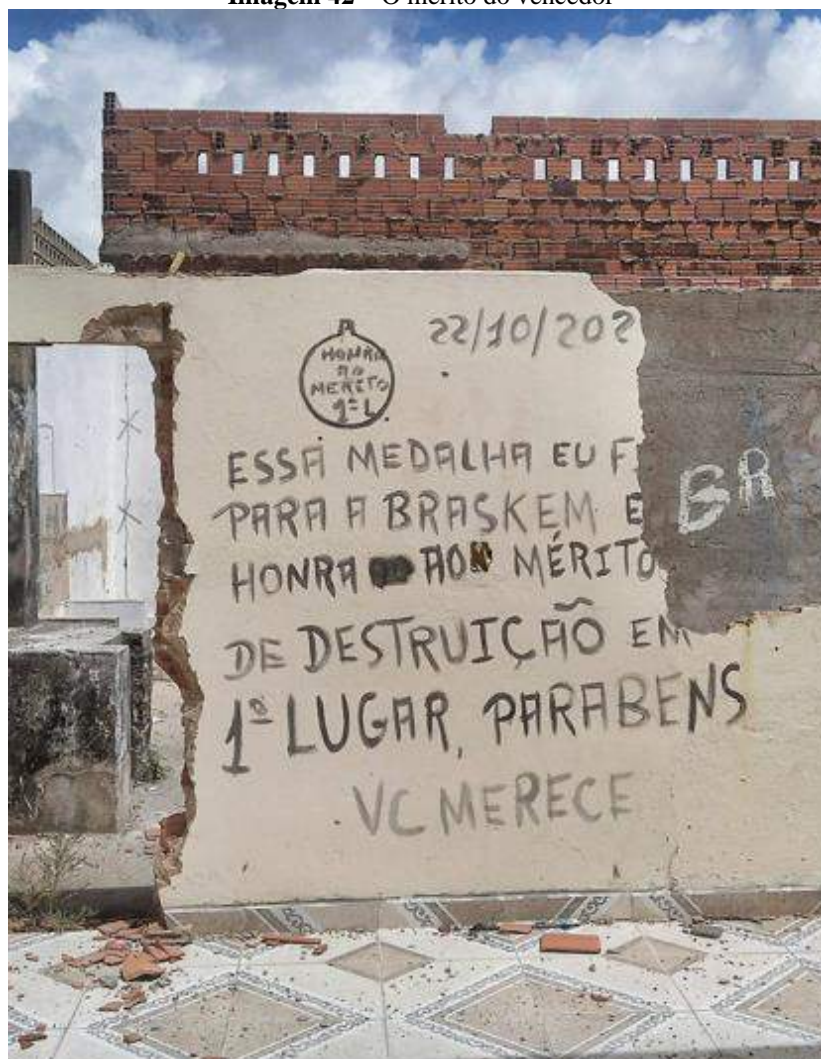 Imagem 42 – O mérito do vencedor
22/10/202
HONRA
AO
MERITO
1º L.
ESSA MEDALHA EU F
PARA A BRASKEM E
HONRA AO MÉRITO
DE DESTRUIÇÃO EM
1º LUGAR, PARABENS
VC MERECE
BR